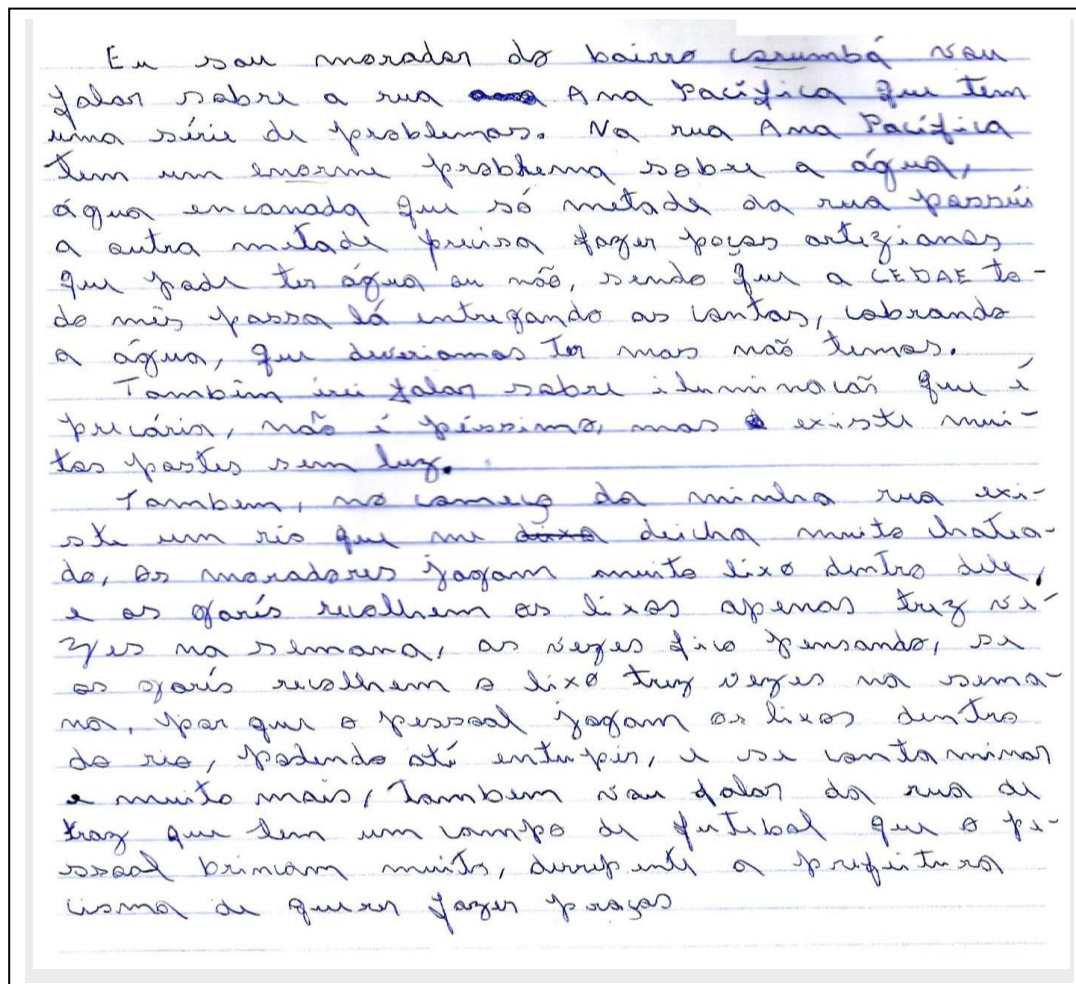 Eu sou morador do bairro Carumbá vou
falar sobre a rua Ana Pacífica que tem
uma série de problemas. Na rua Ana Pacífica
tem um enorme problema sobre a água,
água encanada que só metade da rua possúi
a outra metade precisa fazer poços artezianos
que pode ter água ou não, sendo que a CEDAE to-
do mês passa lá entregando as contas, cobrando
a água, que deveriamos ter mas não temos.
Também irei falar sobre iluminacão que é
precária, não é péssima, mas existe mui-
tos postes sem luz.
Tambem, no começo da minha rua exi-
ste um rio que me deicha muito chatea-
do, os moradores jogam muito lixo dentro dele,
e os garís recolhem os lixos apenas trez ve-
zes na semana, as vezes fico pensando, se
os garís recolhem o lixo trez vezes na sema-
na, por que o pessoal jogam os lixos dentro
do rio, podendo até entupir, e se contaminar
e muito mais, Tambem vou falar da rua de
traz que tem um campo de futebol que o pe-
ssoal brincam muito, derrepente a prefeitura
cisma de querer fazer praças